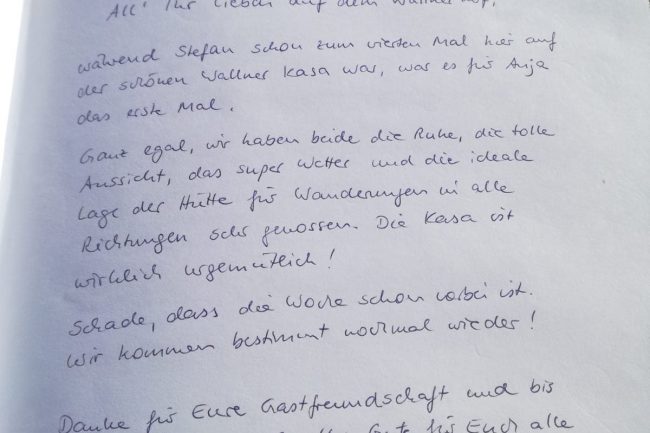 All' Ihr Lieben auf dem Wallnerhof,
während Stefan schon zum vierten Mal hier auf
der schönen Wallner Kasa war, war es für Anja
das erste Mal.
Ganz egal, wir haben beide die Ruhe, die tolle
Aussicht, das super Wetter und die ideale
Lage der Hütte für Wanderungen in alle
Richtungen sehr genossen. Die Kasa ist
wirklich urgemütlich!
Schade, dass die Woche schon vorbei ist.
Wir kommen bestimmt nochmal wieder!
Danke für Eure Gastfreundschaft und bis
Gute für Euch alle